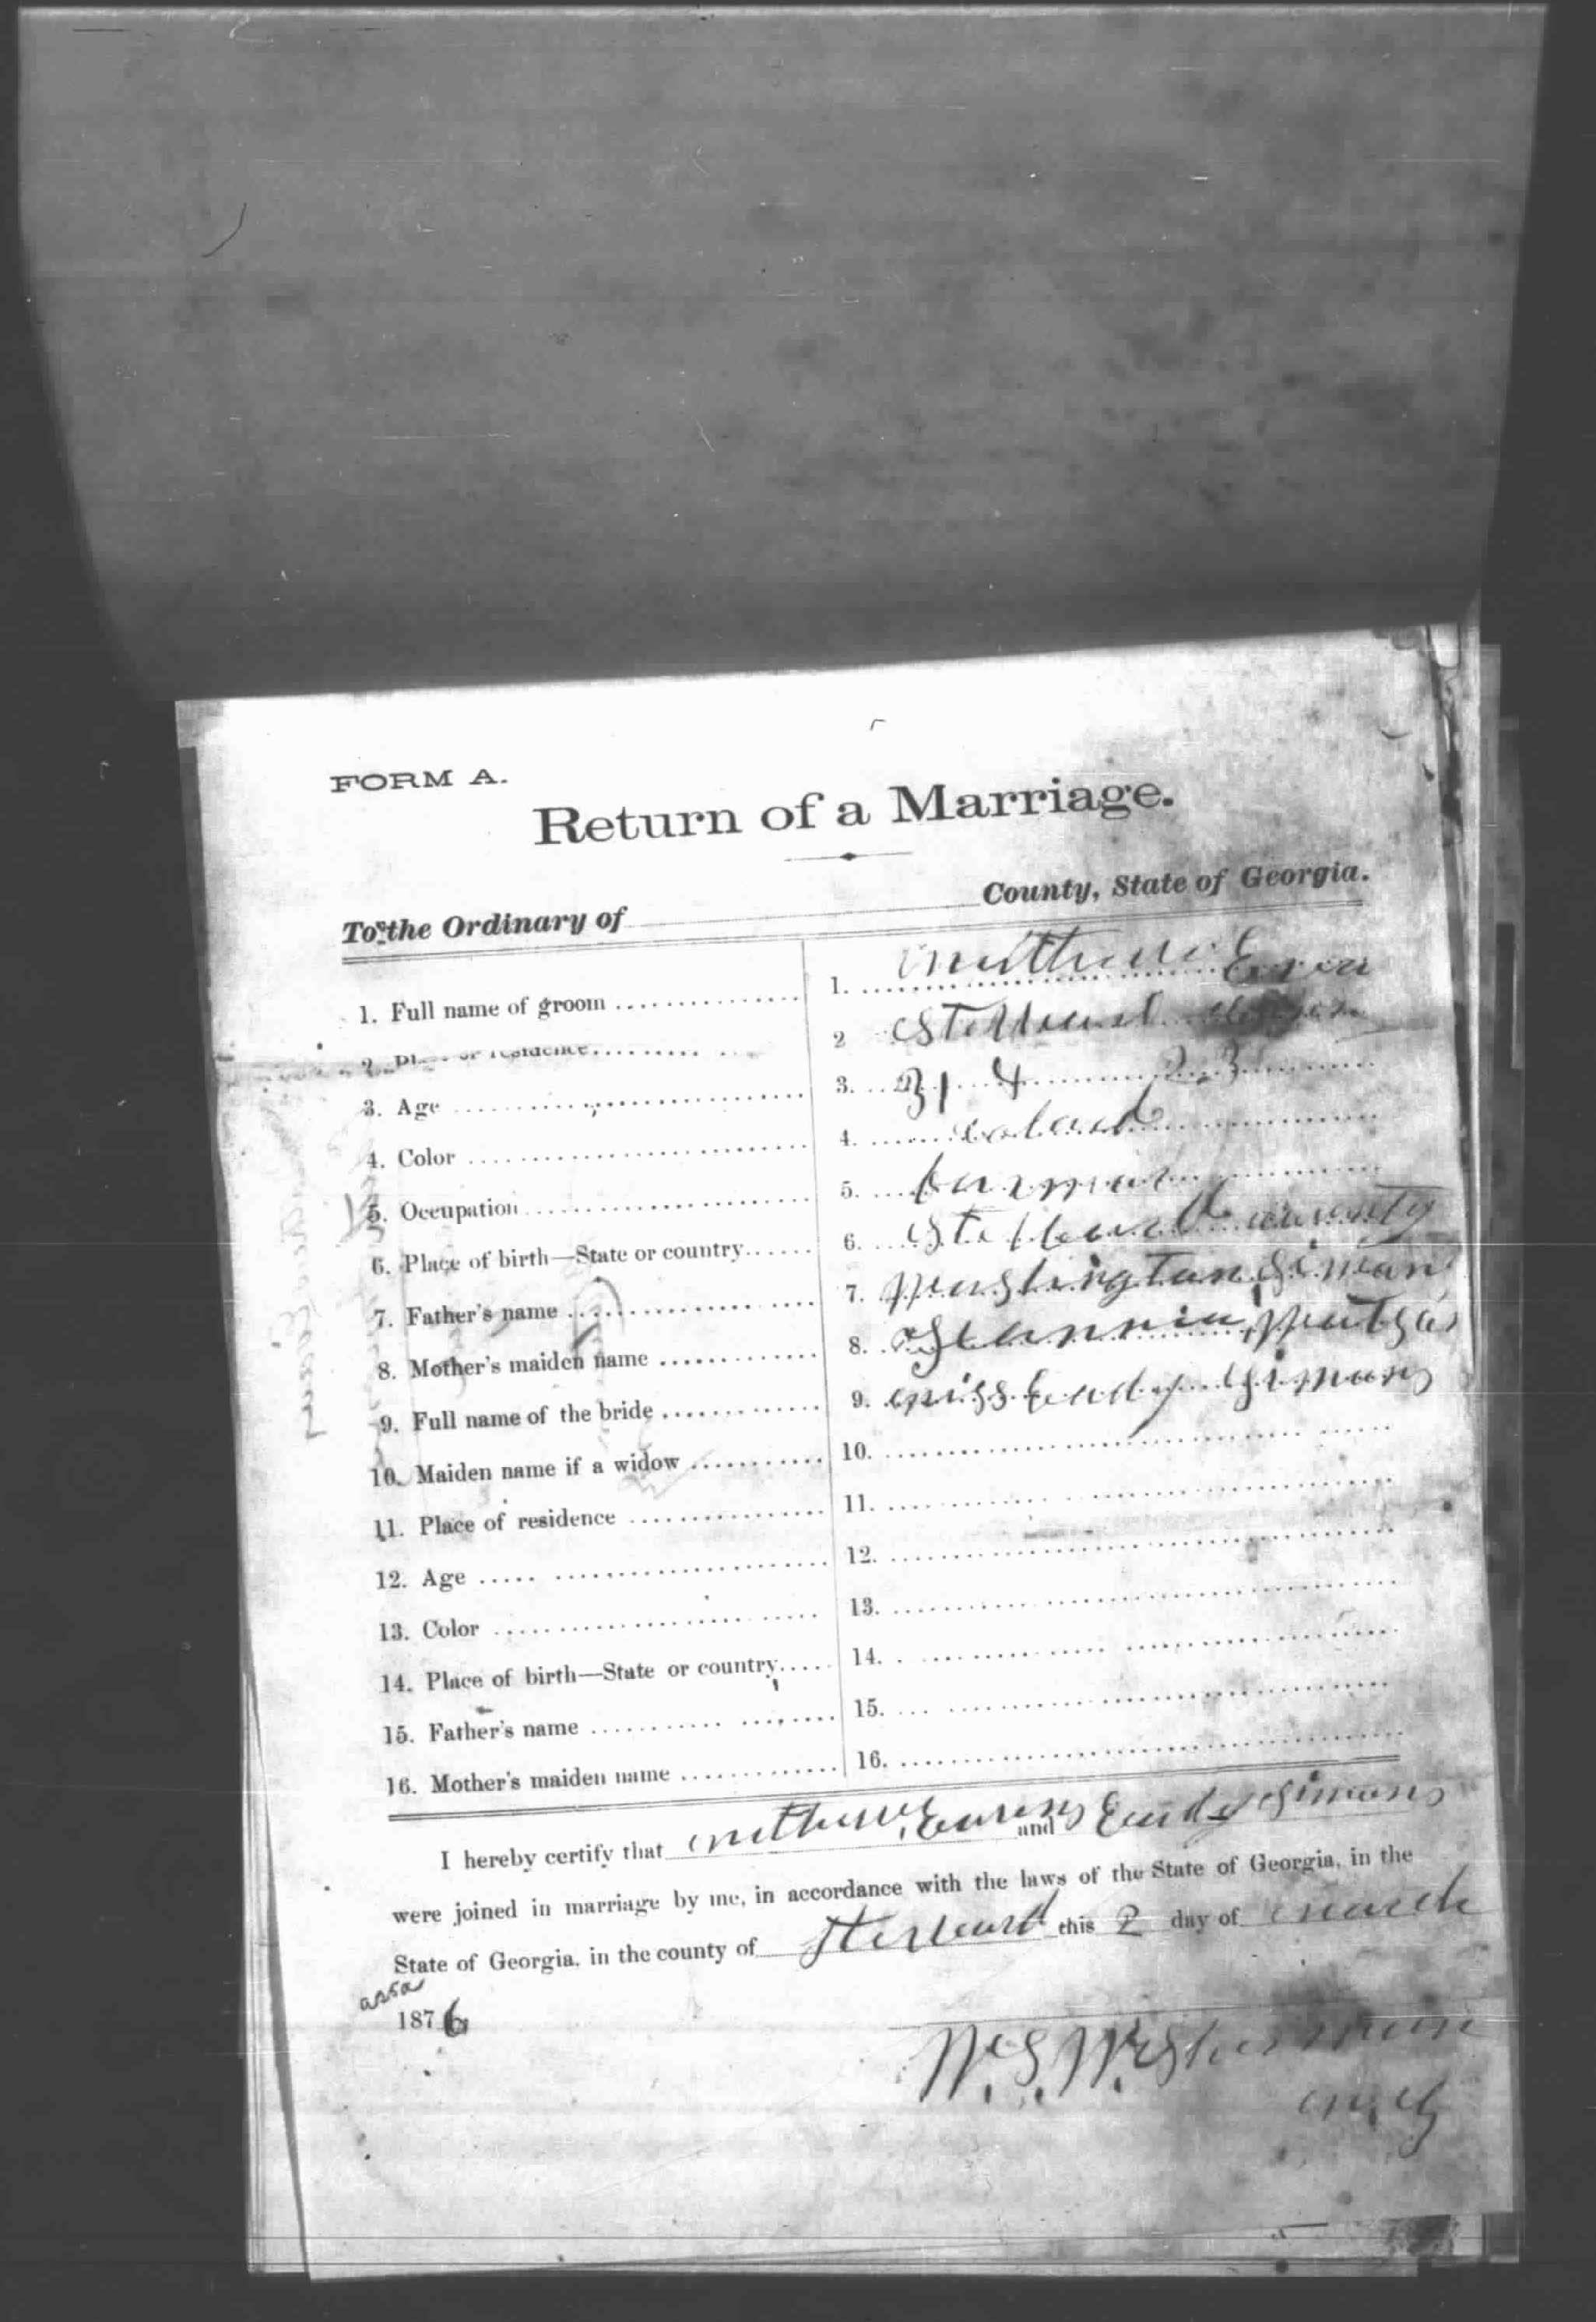 FORM A.
Return of a Marriage.
To the Ordinary of County, State of Georgia.
1. Full name of groom 1. Matthew
2. Place of residence 2
3. Age 3. 31 4 23
4. Color 4. colard
5. Occupation 5. farmar
6. Place of birth—State or country 6. county
7. Father's name 7. Washington Siman
8. Mother's maiden name 8.
9. Full name of the bride 9. miss Eady Simons
10. Maiden name if a widow 10.
11. Place of residence 11.
12. Age 12.
13. Color 13.
14. Place of birth—State or country 14.
15. Father's name 15.
16. Mother's maiden name 16.
I hereby certify that and Eady Simons
were joined in marriage by me, in accordance with the laws of the State of Georgia, in the
State of Georgia, in the county of this 2 day of march
1876
W. S. W. Sherman
m. g